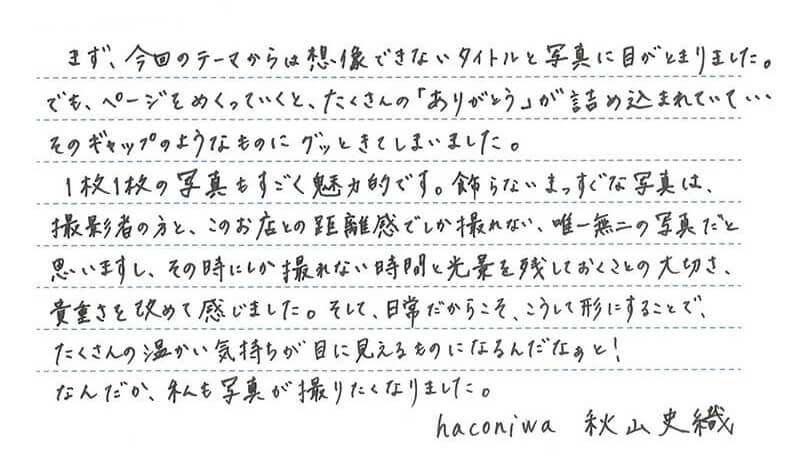 まず、今回のテーマからは想像できないタイトルと写真に目がとまりました。
でも、ページをめくっていくと、たくさんの「ありがとう」が詰め込まれていて…
そのギャップのようなものにグッときてしまいました。
1枚1枚の写真もすごく魅力的です。飾らないまっすぐな写真は、
撮影者の方と、このお店との距離感でしか撮れない、唯一無二の写真だと
思いますし、その時にしか撮れない時間と光景を残しておくことの大切さ、
貴重さを改めて感じました。そして、日常だからこそ、こうして形にすることで、
たくさんの温かい気持ちが目に見えるものになるんだなぁと!
なんだか、私も写真が撮りたくなりました。
haconiwa 秋山史織